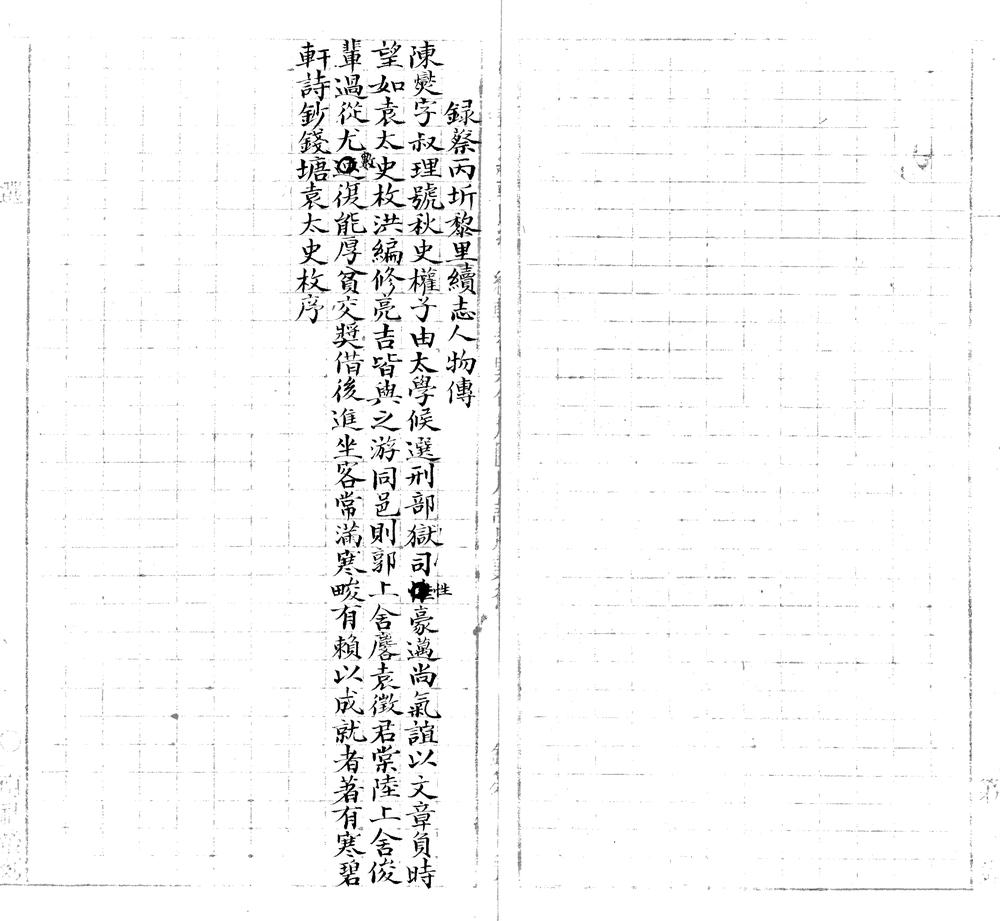 録蔡丙圻黎里續志人物傳
陳爕字叔理號秋史權子由太學候選刑部獄司性豪邁尚氣誼以文章負時
望如袁太史枚洪編修亮吉皆與之游同邑則郭上舍麐袁徵君棠陸上舍俊
輩過從尤數復能厚貧交奬借後進坐客常滿寒畯有賴以成就者著有寒碧
軒詩鈔錢塘袁太史枚序